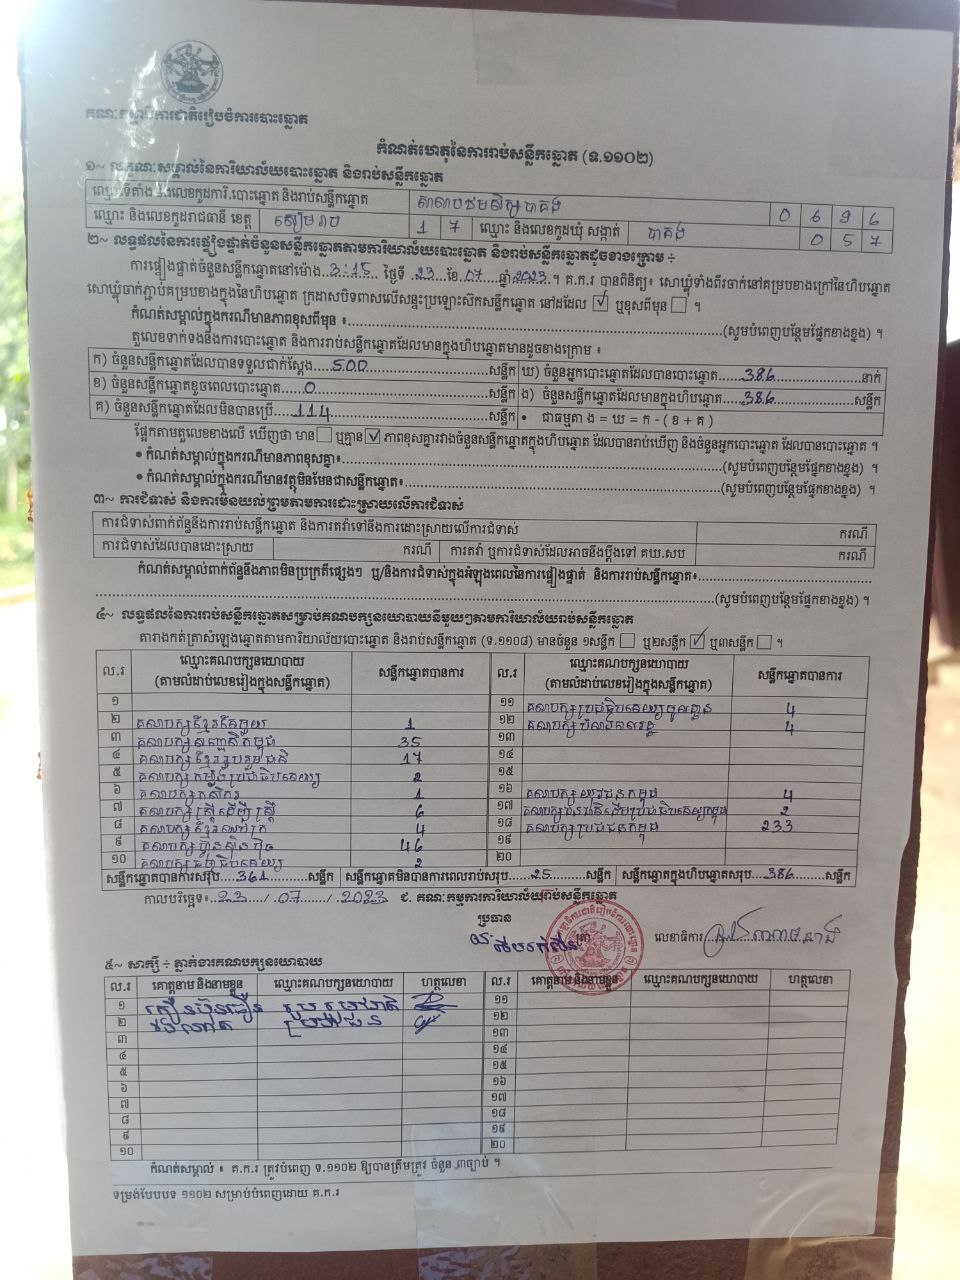 គណៈកម្មាធិការជាតិរៀបចំការបោះឆ្នោត
កំណត់ហេតុនៃការរាប់សន្លឹកឆ្នោត (ទ.១១០២)
១~ លក្ខណៈសម្គាល់នៃការិយាល័យបោះឆ្នោត និងរាប់សន្លឹកឆ្នោត
ឈ្មោះទីតាំង និងលេខកូដការិ.បោះឆ្នោត និងរាប់សន្លឹកឆ្នោត 0 6 9 6
ឈ្មោះ និងលេខកូដរាជធានី ខេត្ត សៀមរាប 1 7 ឈ្មោះ និងលេខកូដឃុំ សង្កាត់ បាគង 0 5 7
២~ លទ្ធផលនៃការផ្ទៀងផ្ទាត់ចំនួនសន្លឹកឆ្នោតតាមការិយាល័យបោះឆ្នោត និងរាប់សន្លឹកឆ្នោតដូចខាងក្រោម ÷
ការផ្ទៀងផ្ទាត់ចំនួនសន្លឹកឆ្នោតនៅម៉ោង 3:15 ថ្ងៃទី 23 ខែ 07 ឆ្នាំ 2023 ។ គ.ក.រ បានពិនិត្យ៖ សោឃ្លុំទាំងពីរចាក់នៅគម្របខាងក្រៅនៃហិបឆ្នោត
សោឃ្លុំចាក់ភ្ជាប់គម្របខាងក្នុងនៃហិបឆ្នោត ក្រដាសបិទពាសលើសន្ទះប្រឡោះសិកសន្លឹកឆ្នោត នៅដដែល ☑ ឬខុសពីមុន ☐ ។
កំណត់សម្គាល់ក្នុងករណីមានភាពខុសពីមុន ៖ (សូមបំពេញបន្ថែមផ្នែកខាងខ្នង) ។
តួលេខទាក់ទងនឹងការបោះឆ្នោត និងការរាប់សន្លឹកឆ្នោតដែលមានក្នុងហិបឆ្នោតមានដូចខាងក្រោម ៖
ក) ចំនួនសន្លឹកឆ្នោតដែលបានទទួលជាក់ស្តែង 500 សន្លឹក ឃ) ចំនួនអ្នកបោះឆ្នោតដែលបានបោះឆ្នោត 386 នាក់
ខ) ចំនួនសន្លឹកឆ្នោតខូចពេលបោះឆ្នោត 0 សន្លឹក ង) ចំនួនសន្លឹកឆ្នោតដែលមានក្នុងហិបឆ្នោត 386 សន្លឹក
គ) ចំនួនសន្លឹកឆ្នោតដែលមិនបានប្រើ 114 សន្លឹក • ជាធម្មតា ង = ឃ = ក - ( ខ + គ )
ផ្អែកតាមតួលេខខាងលើ ឃើញថា មាន ☐ ឬគ្មាន ☑ ភាពខុសគ្នារវាងចំនួនសន្លឹកឆ្នោតក្នុងហិបឆ្នោត ដែលបានរាប់ឃើញ និងចំនួនអ្នកបោះឆ្នោត ដែលបានបោះឆ្នោត ។
• កំណត់សម្គាល់ក្នុងករណីមានភាពខុសគ្នា៖ (សូមបំពេញបន្ថែមផ្នែកខាងខ្នង) ។
• កំណត់សម្គាល់ក្នុងករណីមានវត្ថុមិនមែនជាសន្លឹកឆ្នោត៖ (សូមបំពេញបន្ថែមផ្នែកខាងខ្នង) ។
៣~ ការជំទាស់ និងការមិនយល់ព្រមតាមការដោះស្រាយលើការជំទាស់
ការជំទាស់ពាក់ព័ន្ធនឹងការរាប់សន្លឹកឆ្នោត និងការតវ៉ាទៅនឹងការដោះស្រាយលើការជំទាស់ ករណី
ការជំទាស់ដែលបានដោះស្រាយ ករណី ការតវ៉ា ឬការជំទាស់ដែលអាចនឹងប្តឹងទៅ គឃ.សប ករណី
កំណត់សម្គាល់ពាក់ព័ន្ធនឹងភាពមិនប្រក្រតីផ្សេងៗ ឬ/និងការជំទាស់ក្នុងអំឡុងពេលនៃការផ្ទៀងផ្ទាត់ និងការរាប់សន្លឹកឆ្នោត៖
(សូមបំពេញបន្ថែមផ្នែកខាងខ្នង) ។
៤~ លទ្ធផលនៃការរាប់សន្លឹកឆ្នោតសម្រាប់គណបក្សនយោបាយនីមួយៗតាមការិយាល័យរាប់សន្លឹកឆ្នោត
តារាងកត់ត្រាសំឡេងឆ្នោតតាមការិយាល័យបោះឆ្នោត និងរាប់សន្លឹកឆ្នោត (ទ.១១០៨) មានចំនួន ១សន្លឹក ☐ ឬ២សន្លឹក ☑ ឬ៣សន្លឹក ☐ ។
ល.រ ឈ្មោះគណបក្សនយោបាយ (តាមលំដាប់លេខរៀងក្នុងសន្លឹកឆ្នោត) សន្លឹកឆ្នោតបានការ ល.រ ឈ្មោះគណបក្សនយោបាយ (តាមលំដាប់លេខរៀងក្នុងសន្លឹកឆ្នោត) សន្លឹកឆ្នោតបានការ
១ ១១ គណបក្សប្រជាធិបតេយ្យមូលដ្ឋាន 4
២ គណបក្សខ្មែរតែមួយ 1 ១២ គណបក្សបំណងពលរដ្ឋ 4
៣ គណបក្សសញ្ជាតិកម្ពុជា 35 ១៣
៤ គណបក្សខ្មែររួបរួមជាតិ 17 ១៤
៥ គណបក្សកម្លាំងប្រជាធិបតេយ្យ 2 ១៥
៦ គណបក្សកសិករ 1 ១៦ គណបក្សយុវជនកម្ពុជា 4
៧ គណបក្សស្ត្រីដើម្បីស្ត្រី 6 ១៧ 2
៨ គណបក្សខ្មែរឈប់ក្រ 4 ១៨ គណបក្សប្រជាជនកម្ពុជា 233
៩ គណបក្សហ៊្វុនស៊ិនប៉ិច 46 ១៩
១០ គណបក្សធម្មាធិបតេយ្យ 2 ២០
សន្លឹកឆ្នោតបានការសរុប 361 សន្លឹក សន្លឹកឆ្នោតមិនបានការពេលរាប់សរុប 25 សន្លឹក សន្លឹកឆ្នោតក្នុងហិបឆ្នោតសរុប 386 សន្លឹក
កាលបរិច្ឆេទ៖ 23 / 07 / 2023 ជ. គណៈកម្មការការិយាល័យរាប់សន្លឹកឆ្នោត
ប្រធាន
លេខាធិការ
៥~ សាក្សី ÷ ភ្នាក់ងារគណបក្សនយោបាយ
ល.រ គោត្តនាម និងនាមខ្លួន ឈ្មោះគណបក្សនយោបាយ ហត្ថលេខា ល.រ គោត្តនាម និងនាមខ្លួន ឈ្មោះគណបក្សនយោបាយ ហត្ថលេខា
១ រួបរួមជាតិ ១១
២ ប្រជាជន ១២
៣ ១៣
៤ ១៤
៥ ១៥
៦ ១៦
៧ ១៧
៨ ១៨
៩ ១៩
១០ ២០
កំណត់សម្គាល់ ៖ គ.ក.រ ត្រូវបំពេញ ទ.១១០២ ឱ្យបានត្រឹមត្រូវ ចំនួន ៣ច្បាប់ ។
ទម្រង់បែបបទ ១១០២ សម្រាប់បំពេញដោយ គ.ក.រ